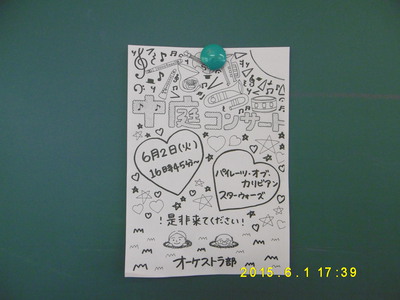 中庭コンサート
6月2日(火)
16時45分~
パイレーツ・オブ・
カリビアン
スターウォーズ
!是非来てください!
オーケストラ部
2015.6.1 17:39